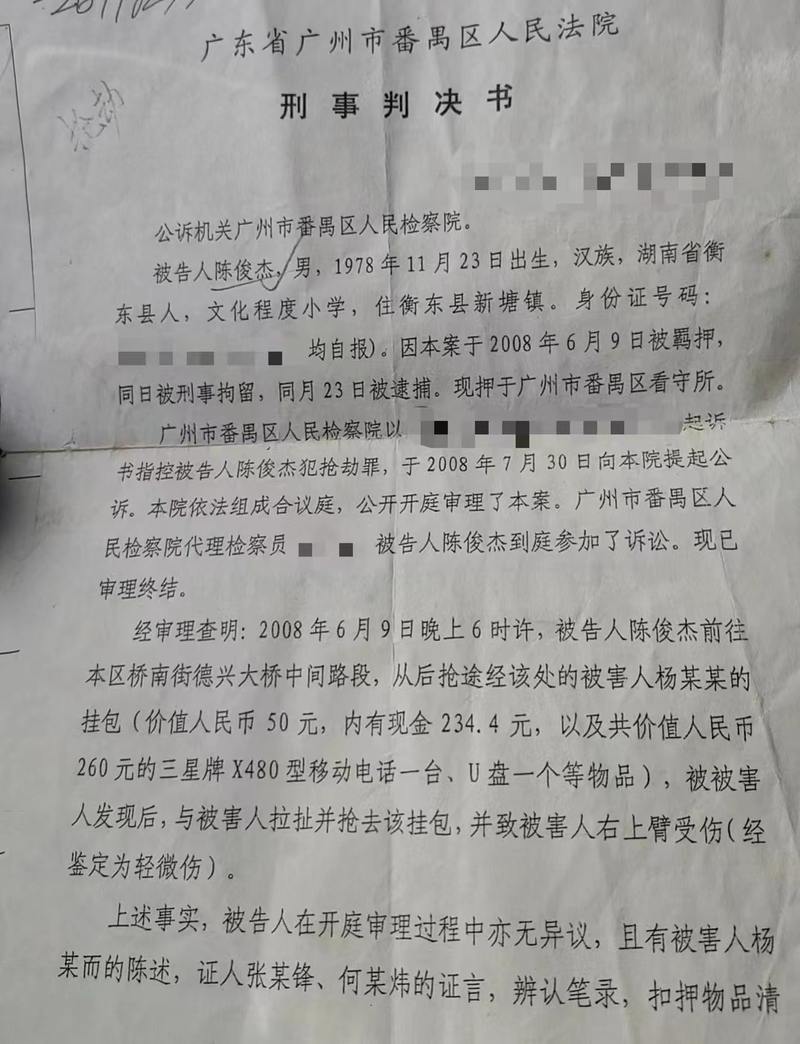 广东省广州市番禺区人民法院
刑事判决书
公诉机关广州市番禺区人民检察院。
被告人陈俊杰，男，1978年11月23日出生，汉族，湖南省衡
东县人，文化程度小学，住衡东县新塘镇。身份证号码：
均自报)。因本案于2008年6月9日被羁押，
同日被刑事拘留，同月23日被逮捕。现押于广州市番禺区看守所。
广州市番禺区人民检察院以 起诉
书指控被告人陈俊杰犯抢劫罪，于2008年7月30日向本院提起公
诉。本院依法组成合议庭，公开开庭审理了本案。广州市番禺区人
民检察院代理检察员 被告人陈俊杰到庭参加了诉讼。现已
审理终结。
经审理查明：2008年6月9日晚上6时许，被告人陈俊杰前往
本区桥南街德兴大桥中间路段，从后抢途经该处的被害人杨某某的
挂包（价值人民币50元，内有现金234.4元，以及共价值人民币
260元的三星牌X480型移动电话一台、U盘一个等物品），被被害
人发现后，与被害人拉扯并抢去该挂包，并致被害人右上臂受伤（经
鉴定为轻微伤）。
上述事实，被告人在开庭审理过程中亦无异议，且有被害人杨
某而的陈述，证人张某锋、何某炜的证言，辨认笔录，扣押物品清